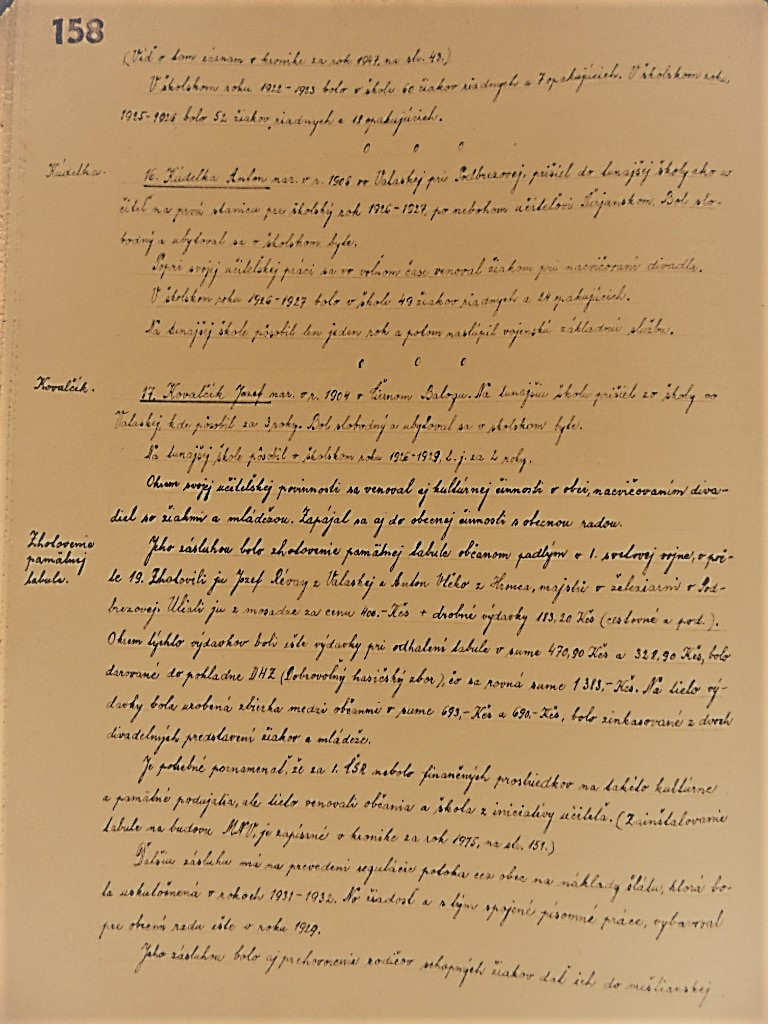 158
(Viď o tom záznam v kronike za rok 1947, na str. 43.)
V školskom roku 1922-1923 bolo v škole 60 žiakov riadnych a 7 opakujúcich. V školskom roku
1925-1926 bolo 52 žiakov riadnych a 18 opakujúcich.
Kúdelka.
16. Kúdelka Anton nar. v r. 1906 vo Valaskej pri Podbrezovej, prišiel do tunajšej školy ako u-
čiteľ na prvú stanicu pre školský rok 1926-1927, po nebohom učiteľovi Turjanskom. Bol slo-
bodný a ubytoval sa v školskom byte.
Popri svojej učiteľskej práci sa vo voľnom čase venoval žiakom pri nacvičovaní divadla.
V školskom roku 1926-1927 bolo v škole 49 žiakov riadnych a 24 opakujúcich.
Na tunajšej škole pôsobil len jeden rok a potom nastúpil vojenskú základnú službu.
Kovalčík.
17. Kovalčík Jozef nar. v r. 1904 v Čiernom Balogu. Na tunajšiu školu prišiel zo školy vo
Valaskej, kde pôsobil za 3 roky. Bol slobodný a ubytoval sa v školskom byte.
Na tunajšej škole pôsobil v školskom roku 1926-1929, t. j. za 2 roky.
Okrem svojej učiteľskej povinnosti sa venoval aj kultúrnej činnosti v obci, nacvičovaním diva-
diel so žiakmi a mládežou. Zapájal sa aj do obecnej činnosti s obecnou radou.
Zhotovenie
pamätnej
tabule.
Jeho zásluhou bolo zhotovenie pamätnej tabule občanom padlým v 1. svetovej vojne, v poč-
te 19. Zhotovili ju Jozef Révay z Valaskej a Anton Vlčko z Hronca, majstri v železiarni v Pod-
brezovej. Uliali ju z mosadze za cenu 400.-Kčs + drobné výdavky 183,20 Kčs (cestovné a pod.).
Okrem týchto výdavkov boli ešte výdavky pri odhalení tabule v sume 470,90 Kčs a 328,90 Kčs, bolo
darované do pokladne DHZ (Dobrovoľný hasičský zbor), čo sa rovná sume 1 383,-Kčs. Na tieto vý-
davky bola urobená zbierka medzi občanmi v sume 693,-Kčs a 690.-Kčs, bolo zinkasované z dvoch
divadelných predstavení žiakov a mládeže.
Je potrebné poznamenať, že za 1. ČSR nebolo finančných prostriedkov na takéto kultúrne
a pamätné podujatia, ale tieto venovali občania a škola z iniciatívy učiteľa. (Zainštalovanie
tabule na budovu MNV, je zapísané v kronike za rok 1975, na str. 151.)
Ďalšiu zásluhu má na prevedení regulácie potoka cez obec na náklady štátu, ktorá bo-
la uskutočnená v rokoch 1931-1932. No žiadosť a s tým spojené písomné práce, vybavoval
pre obecnú radu ešte v roku 1929.
Jeho zásluhou bolo aj prehovorenie rodičov schopných žiakov dať ich do meštianskej